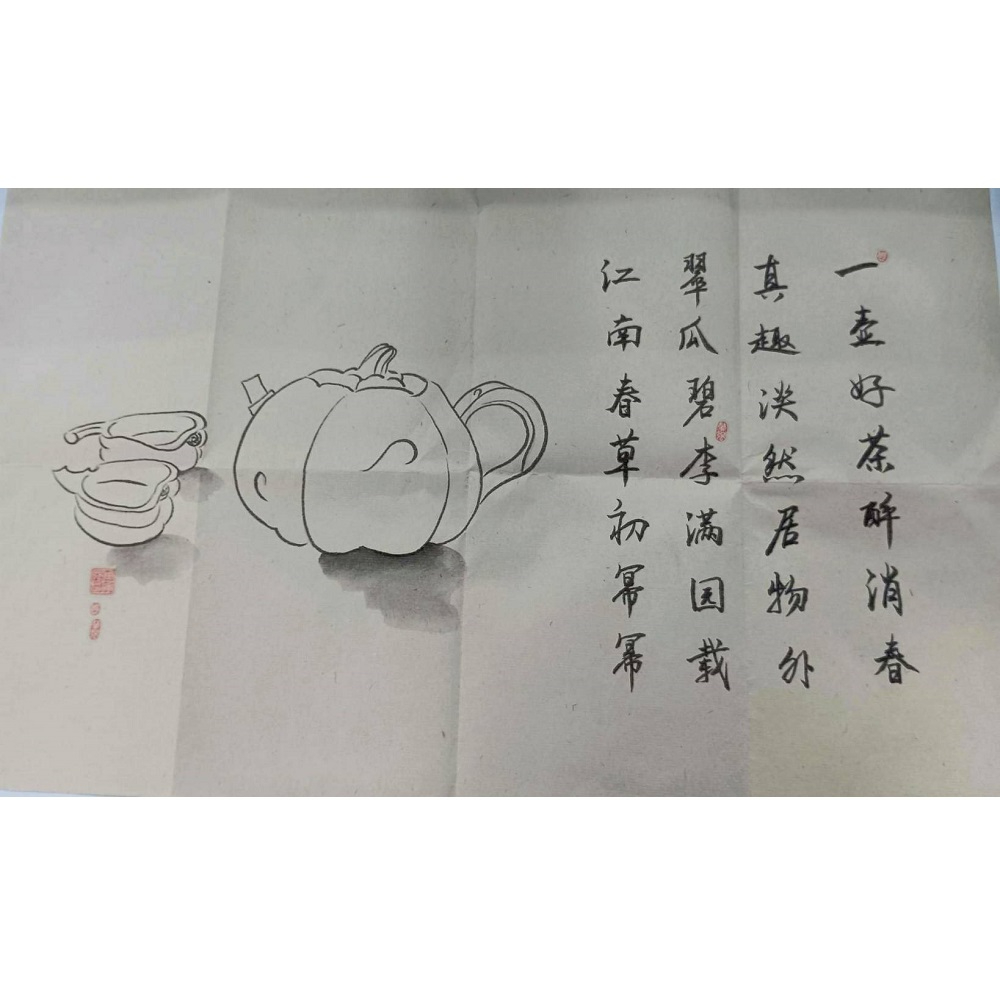 一壶好茶醉消春
真趣淡然居物外
翠瓜碧李满园载
江南春草初幂幂